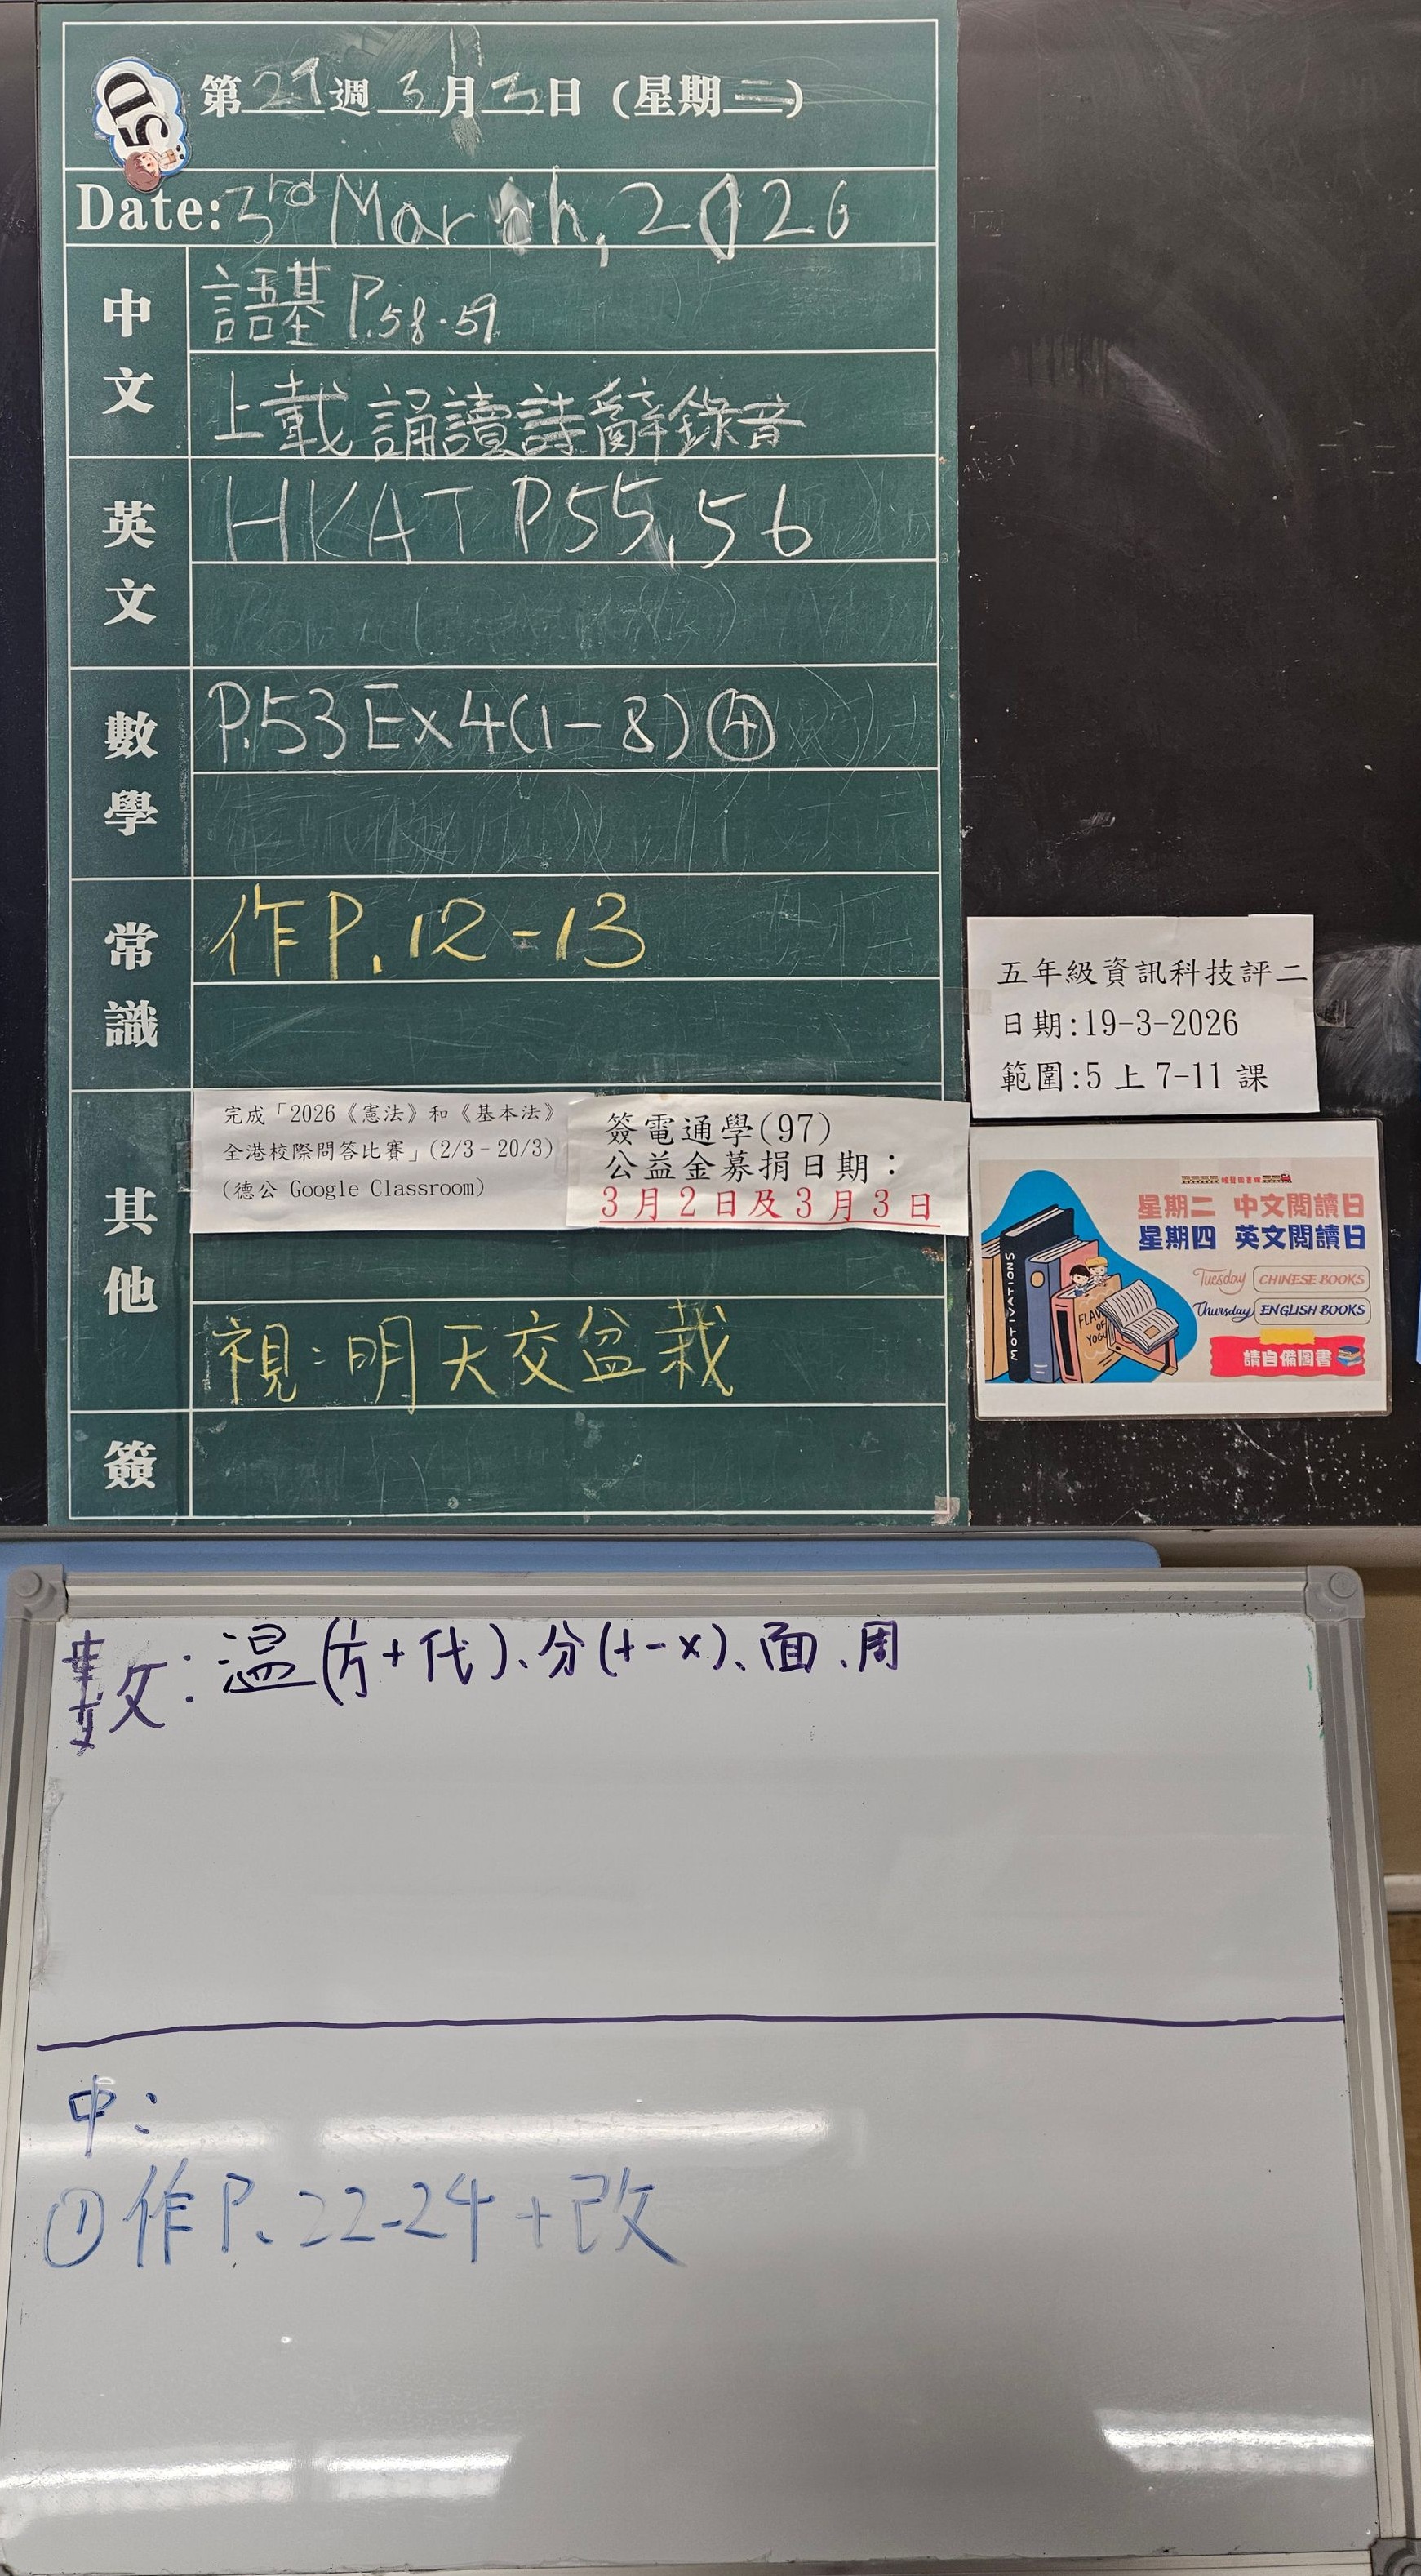 5D
第27週 3月3日 (星期二)
Date: 3rd March, 2026
中文
語基 P.58.59
上載誦讀詩辭錄音
英文
HKAT P55,56
數學
P.53 Ex4(1-8) ④
常識
作P.12-13
其他
完成「2026《憲法》和《基本法》
全港校際問答比賽」(2/3-20/3)
(德公 Google Classroom)
簽電通學(97)
公益金募捐日期：
3月2日及3月3日
視:明天交盆栽
簽
五年級資訊科技評二
日期:19-3-2026
範圍:5上7-11課
星期二 中文閱讀日
星期四 英文閱讀日
Tuesday CHINESE BOOKS
Thursday ENGLISH BOOKS
請自備圖書
MOTIVATIONS
數:温(方+代)、分(+-×)、面、周
中:
①作P.22-24+改